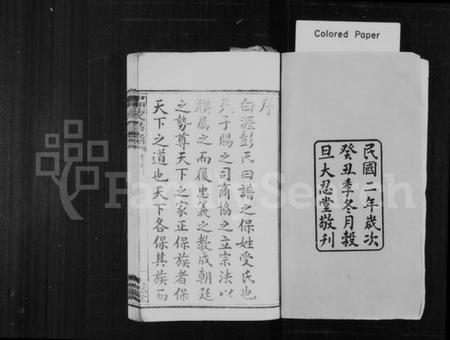 Colored Paper
民國二年歲次
癸丑季冬月穀
旦大忍堂敬刊
序
白涯彭氏曰譜之保姓受氏也
天子賜之司商協之立宗法以
聯屬之而後忠義之教成朝廷
之勢尊天下之家正保族者保
天下之道也天下各保其族而
FamilySearch